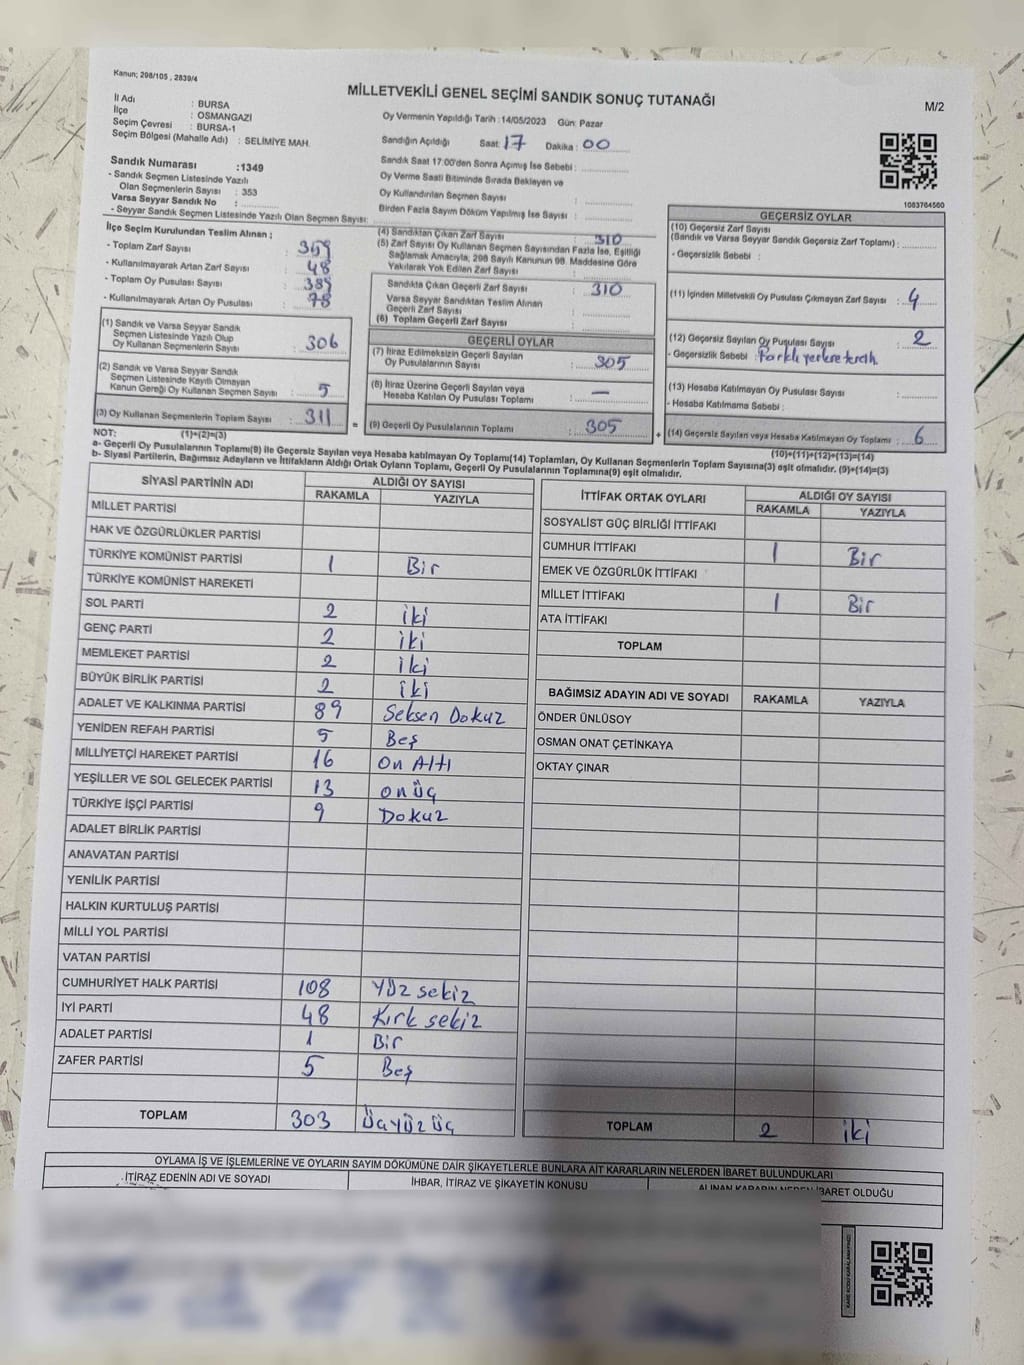 Kanun; 298/105 , 2839/4
MİLLETVEKİLİ GENEL SEÇİMİ SANDIK SONUÇ TUTANAĞI
M/2
İl Adı : BURSA
İlçe : OSMANGAZİ
Seçim Çevresi : BURSA-1
Seçim Bölgesi (Mahalle Adı) : SELİMİYE MAH.
Sandık Numarası :1349
- Sandık Seçmen Listesinde Yazılı
Olan Seçmenlerin Sayısı : 353
Varsa Seyyar Sandık No :
- Seyyar Sandık Seçmen Listesinde Yazılı Olan Seçmen Sayısı:
Oy Vermenin Yapıldığı Tarih :14/05/2023 Gün: Pazar
Sandığın Açıldığı Saat: 17 Dakika : 00
Sandık Saat 17:00'den Sonra Açımış İse Sebebi :
Oy Verme Saati Bitiminde Sırada Bekleyen ve
Oy Kullandırılan Seçmen Sayısı :
Birden Fazla Sayım Döküm Yapılmış İse Sayısı :
1083764560
İlçe Seçim Kurulundan Teslim Alınan ;
- Toplam Zarf Sayısı :
- Kullanılmayarak Artan Zarf Sayısı : 48
- Toplam Oy Pusulası Sayısı :
- Kullanılmayarak Artan Oy Pusulası : 78
(1) Sandık ve Varsa Seyyar Sandık
Seçmen Listesinde Yazılı Olup
Oy Kullanan Seçmenlerin Sayısı : 306
(2) Sandık ve Varsa Seyyar Sandık
Seçmen Listesinde Kayıtlı Olmayan
Kanun Gereği Oy Kullanan Seçmen Sayısı : 5
(3) Oy Kullanan Seçmenlerin Toplam Sayısı : 311
(1)+(2)=(3)
(4) Sandıktan Çıkan Zarf Sayısı : 310
(5) Zarf Sayısı Oy Kullanan Seçmen Sayısından Fazla İse, Eşitliği
Sağlamak Amacıyla; 298 Sayılı Kanunun 98. Maddesine Göre
Yakılarak Yok Edilen Zarf Sayısı :
Sandıkta Çıkan Geçerli Zarf Sayısı : 310
Varsa Seyyar Sandıktan Teslim Alınan
Geçerli Zarf Sayısı :
(6) Toplam Geçerli Zarf Sayısı :
GEÇERLİ OYLAR
(7) İtiraz Edilmeksizin Geçerli Sayılan
Oy Pusulalarının Sayısı : 305
(8) İtiraz Üzerine Geçerli Sayılan veya
Hesaba Katılan Oy Pusulası Toplamı : —
= (9) Geçerli Oy Pusulalarının Toplamı : 305
GEÇERSİZ OYLAR
(10) Geçersiz Zarf Sayısı
(Sandık ve Varsa Seyyar Sandık Geçersiz Zarf Toplamı) :
- Geçersizlik Sebebi :
(11) İçinden Milletvekili Oy Pusulası Çıkmayan Zarf Sayısı : 4
(12) Geçersiz Sayılan Oy Pusulası Sayısı : 2
- Geçersizlik Sebebi : Farklı yerlere tercih
(13) Hesaba Katılmayan Oy Pusulası Sayısı :
- Hesaba Katılmama Sebebi :
+ (14) Geçersiz Sayılan veya Hesaba Katılmayan Oy Toplamı : 6
(10)+(11)+(12)+(13)=(14)
NOT:
a- Geçerli Oy Pusulalarının Toplamı(9) ile Geçersiz Sayılan veya Hesaba katılmayan Oy Toplamı(14) Toplamları, Oy Kullanan Seçmenlerin Toplam Sayısına(3) eşit olmalıdır. (9)+(14)=(3)
b- Siyasi Partilerin, Bağımsız Adayların ve İttifakların Aldığı Ortak Oyların Toplamı, Geçerli Oy Pusulalarının Toplamına(9) eşit olmalıdır.
SİYASİ PARTİNİN ADI ALDIĞI OY SAYISI
RAKAMLA YAZIYLA
MİLLET PARTİSİ
HAK VE ÖZGÜRLÜKLER PARTİSİ
TÜRKİYE KOMÜNİST PARTİSİ 1 Bir
TÜRKİYE KOMÜNİST HAREKETİ
SOL PARTİ 2 iki
GENÇ PARTİ 2 iki
MEMLEKET PARTİSİ 2 iki
BÜYÜK BİRLİK PARTİSİ 2 iki
ADALET VE KALKINMA PARTİSİ 89 Seksen Dokuz
YENİDEN REFAH PARTİSİ 5 Beş
MİLLİYETÇİ HAREKET PARTİSİ 16 On Altı
YEŞİLLER VE SOL GELECEK PARTİSİ 13 onüç
TÜRKİYE İŞÇİ PARTİSİ 9 Dokuz
ADALET BİRLİK PARTİSİ
ANAVATAN PARTİSİ
YENİLİK PARTİSİ
HALKIN KURTULUŞ PARTİSİ
MİLLİ YOL PARTİSİ
VATAN PARTİSİ
CUMHURİYET HALK PARTİSİ 108 Yüz sekiz
İYİ PARTİ 48 Kırk sekiz
ADALET PARTİSİ 1 Bir
ZAFER PARTİSİ 5 Beş
TOPLAM 303 Üçyüz üç
İTTİFAK ORTAK OYLARI ALDIĞI OY SAYISI
RAKAMLA YAZIYLA
SOSYALİST GÜÇ BİRLİĞİ İTTİFAKI
CUMHUR İTTİFAKI 1 Bir
EMEK VE ÖZGÜRLÜK İTTİFAKI
MİLLET İTTİFAKI 1 Bir
ATA İTTİFAKI
TOPLAM
BAĞIMSIZ ADAYIN ADI VE SOYADI RAKAMLA YAZIYLA
ÖNDER ÜNLÜSOY
OSMAN ONAT ÇETİNKAYA
OKTAY ÇINAR
TOPLAM 2 iki
OYLAMA İŞ VE İŞLEMLERİNE VE OYLARIN SAYIM DÖKÜMÜNE DAİR ŞİKAYETLERLE BUNLARA AİT KARARLARIN NELERDEN İBARET BULUNDUKLARI
İTİRAZ EDENİN ADI VE SOYADI
İHBAR, İTİRAZ VE ŞİKAYETİN KONUSU
ALINAN KARARIN NEDEN İBARET OLDUĞU